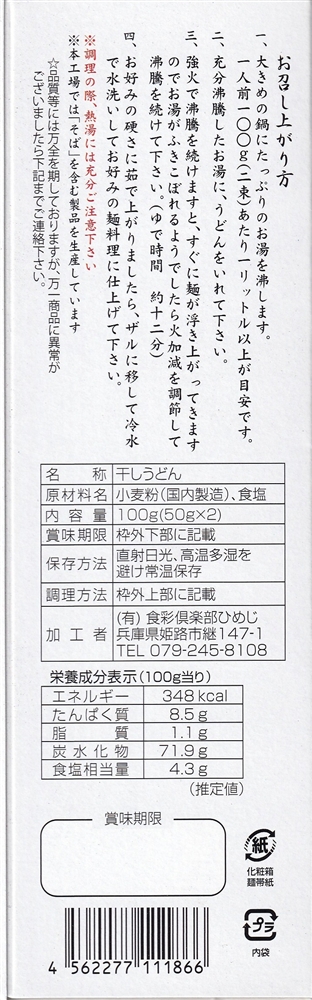 お召し上がり方
一、大きめの鍋にたっぷりのお湯を沸します。
一人前一〇〇g(二束)あたり一リットル以上が目安です。
二、充分沸騰したお湯に、うどんをいれて下さい。
三、強火で沸騰を続けますと、すぐに麺が浮き上がってきます
のでお湯がふきこぼれるようでしたら火加減を調節して
沸騰を続けて下さい。(ゆで時間 約十二分)
四、お好みの硬さに茹で上がりましたら、ザルに移して冷水
で水洗いしてお好みの麺料理に仕上げて下さい。
※調理の際、熱湯には充分ご注意下さい
※本工場では「そば」を含む製品を生産しています
☆品質等には万全を期しておりますが、万一商品に異常が
ございましたら下記までご連絡下さい。
名称 干しうどん
原材料名 小麦粉(国内製造)、食塩
内容量 100g(50g×2)
賞味期限 枠外下部に記載
保存方法 直射日光、高温多湿を
避け常温保存
調理方法 枠外上部に記載
加工者 (有)食彩倶楽部ひめじ
兵庫県姫路市継147-1
TEL 079-245-8108
栄養成分表示(100g当り)
エネルギー 348kcal
たんぱく質 8.5g
脂質 1.1g
炭水化物 71.9g
食塩相当量 4.3g
(推定値)
賞味期限
紙
化粧箱
麺帯紙
プラ
内袋
4 562277 111866